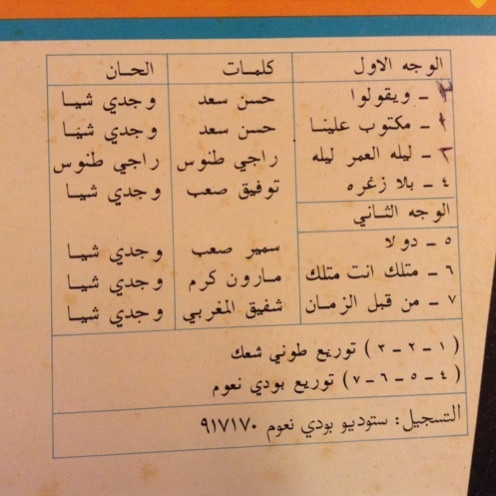 الوجه الاول كلمـات الحـان
ـ ويقولوا حسن سعد وجدي شيـا
ـ مكتوب علينـا حسن سعد وجدي شيـا
ـ ليله العمر ليله راجي طنوس راجي طنوس
٤ ـ بلا زغره توفيق صعب وجدي شيـا
الوجه الثـاني
٥ ـ دولا سمير صعب وجدي شيـا
٦ ـ متلك انت متلك مـارون كرم وجدي شيـا
٧ ـ من قبل الزمـان شفيق المغربي وجدي شيـا
( ١ ـ ٢ ـ ٣ ) توزيع طوني شعك
( ٤ ـ ٥ ـ ٦ ـ ٧ ) توزيع بودي نعوم
التسجيل: ستوديو بودي نعوم ٩١٧١٧٠